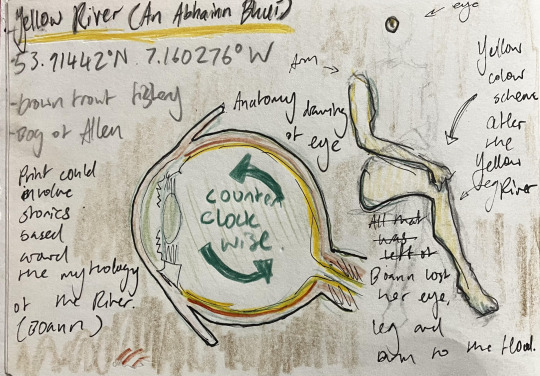 Yellow River (An Abhainn Bhuí)
53.91442°N 7.160276°W
- brown trout fishery
- Bog of Allen
Print could
involve
stories
based
around
the mythology
of the River.
(Boann)
Anatomy drawing
of eye
counter
clock
wise.
eye
Arm
Yellow
colour
scheme
after
the
Yellow
River
Leg
All that
was
left of
Boann lost
her eye,
leg and
arm to the flood.